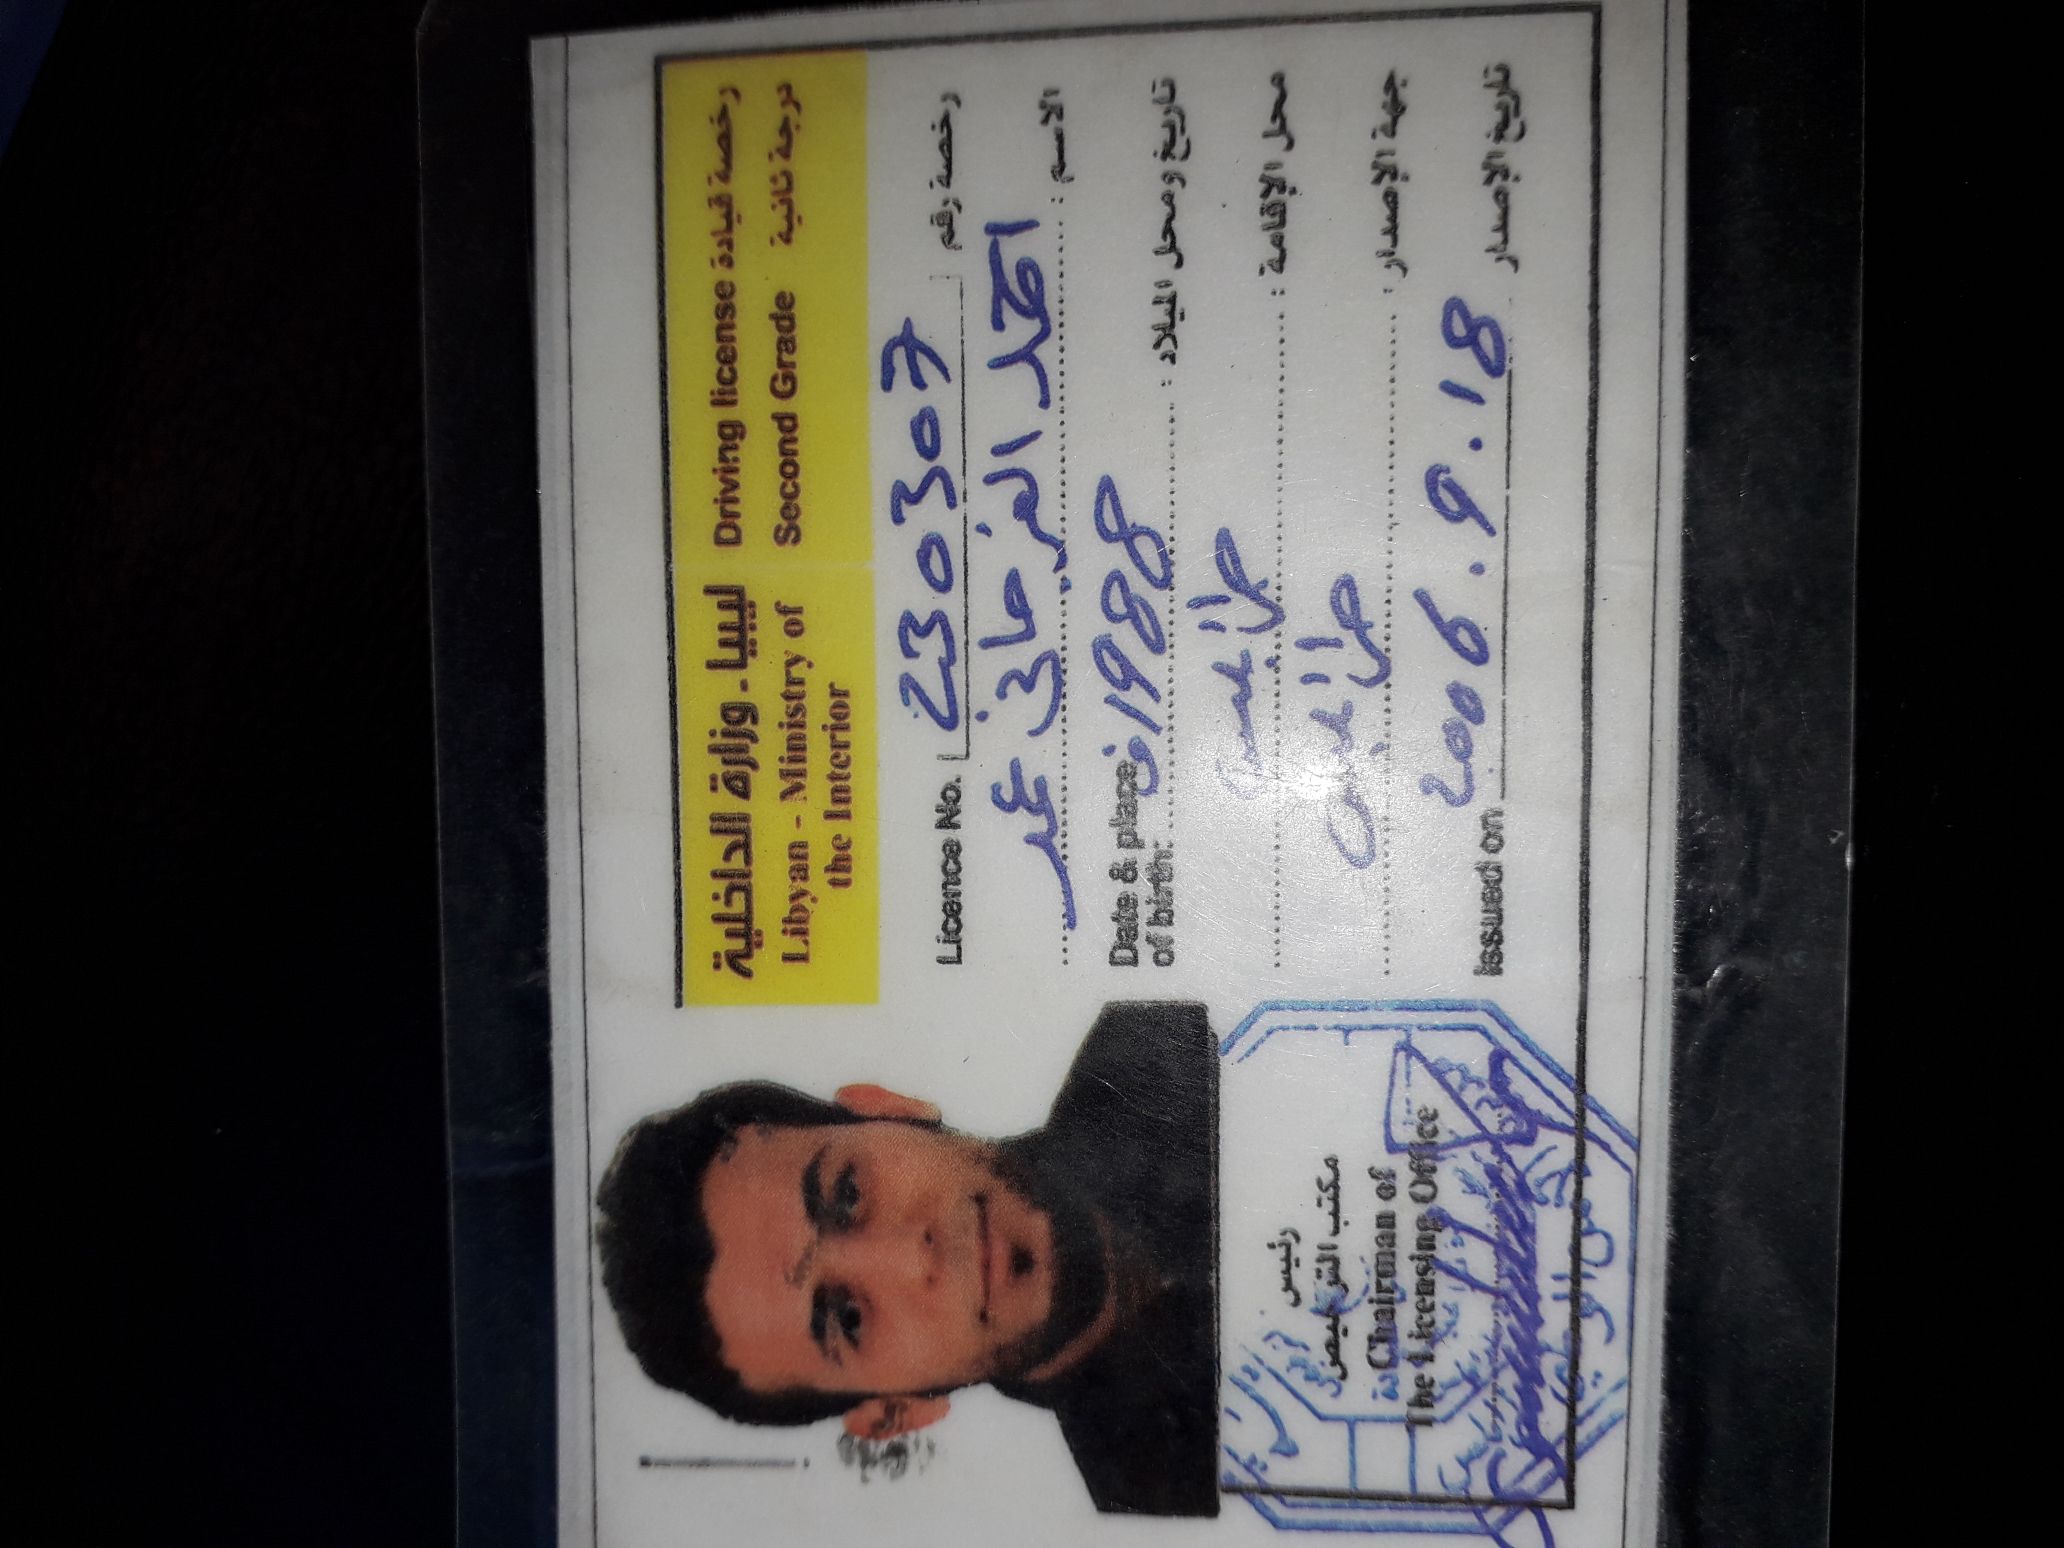 ليبيا - وزارة الداخلية
Libyan - Ministry of
the Interior
Driving license رخصة قيادة
Second Grade درجة ثانية
Licence No. 230307 رخصة رقم
الاسم : احمد الفرجاني
Date & place of birth: 1988 تاريخ ومحل الميلاد :
محل الإقامة : طرابلس
جهة الإصدار : طرابلس
issued on 2006.9.18 تاريخ الإصدار
رئيس
مكتب التراخيص
Chairman of
The Licensing Office